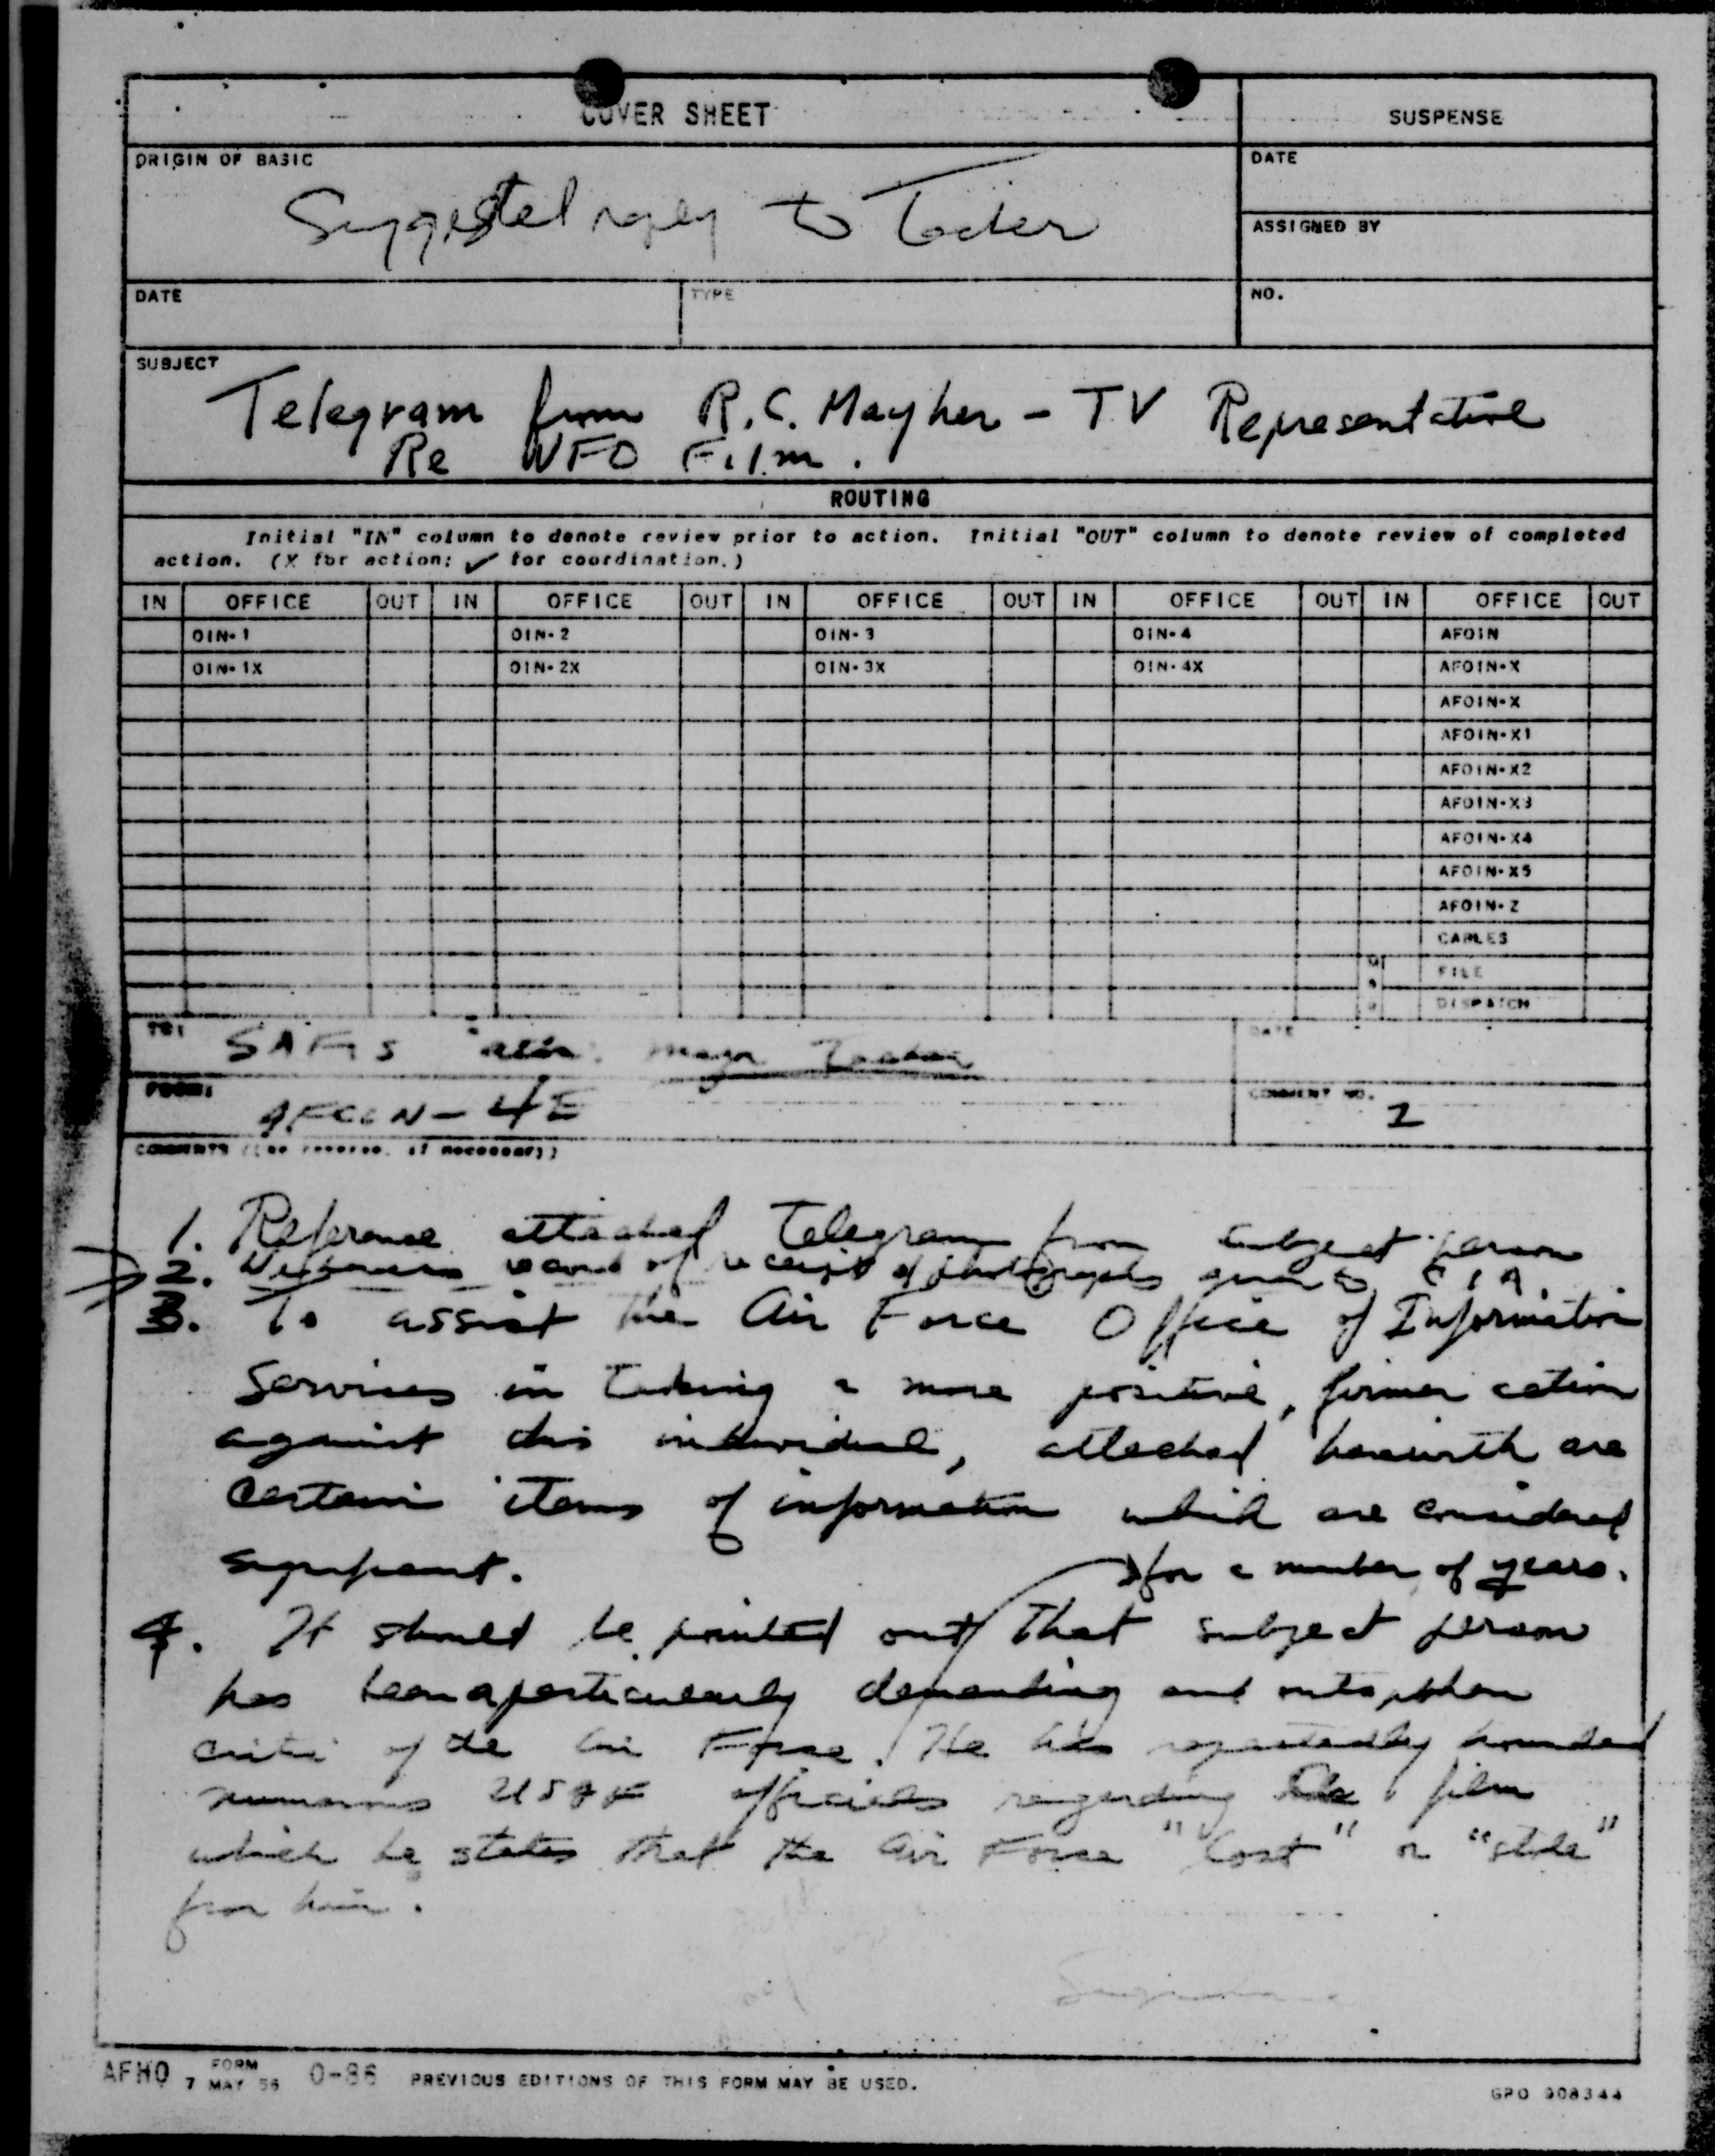 COVER SHEET
SUSPENSE
ORIGIN OF BASIC
Suggested reply to Tacker
DATE
ASSIGNED BY
DATE
TYPE
NO.
SUBJECT
Telegram from R.C. Mayher - TV Representative
Re UFO Film.
ROUTING
Initial "IN" column to denote review prior to action. Initial "OUT" column to denote review of completed
action. (X for action; ✓ for coordination.)
IN OFFICE OUT IN OFFICE OUT IN OFFICE OUT IN OFFICE OUT IN OFFICE OUT
OIN-1 OIN-2 OIN-3 OIN-4 AFOIN
OIN-1X OIN-2X OIN-3X OIN-4X AFOIN-X
AFOIN-X
AFOIN-X1
AFOIN-X2
AFOIN-X3
AFOIN-X4
AFOIN-X5
AFOIN-Z
CABLES
FILE
DISPATCH
TO: SAFIS attn: Major Tacker
DATE
FROM: AFCIN-4E
COMMENT NO. 1
COMMENTS (Use reverse, if necessary)
1. Reference attached Telegram from subject person
2. record of receipt of photographs given to CIA.
3. To assist the Air Force Office of Information
Services in taking a more positive, firmer action
against this individual, attached herewith are
certain items of information which are considered
significant.
for a number of years.
4. It should be pointed out that subject person
has been a particularly demanding and outspoken
critic of the Air Force. He has repeatedly hounded
numerous USAF officials regarding the film
which he states that the Air Force "lost" or "stole"
from him.
AFHQ FORM 7 MAY 56 0-86 PREVIOUS EDITIONS OF THIS FORM MAY BE USED.
GPO 908344